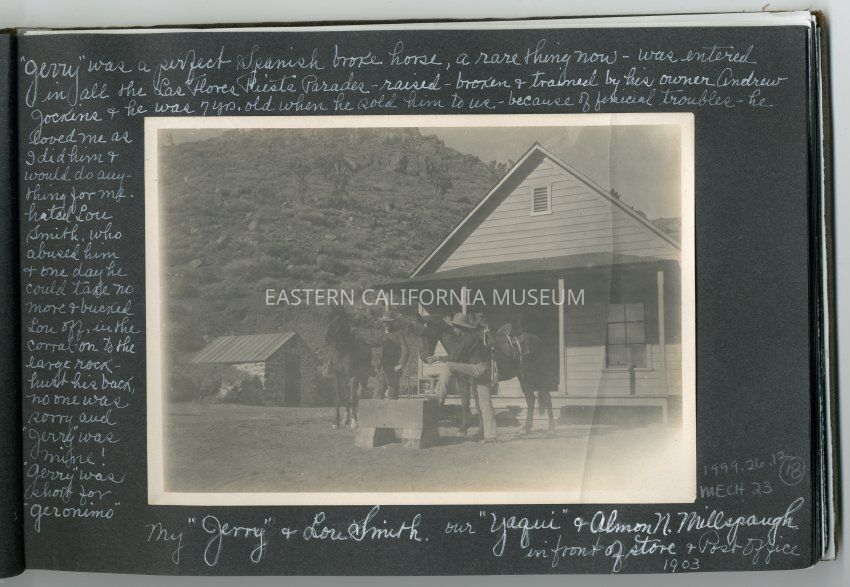 "Jerry" was a perfect Spanish broke horse, a rare thing now - was entered
in all the Las Flores Fiesta Parades - raised - broken & trained by his owner Andrew
Jockins & he was 7 yrs. old when he sold him to us - because of finicial troubles - he
loved me as
I did him &
would do any-
thing for me.
hated Lou
Smith, who
abused him
& one day he
could take no
more & bucked
Lou off, in the
corral on to the
large rock -
hurt his back,
no one was
sorry and
"Jerry" was
mine!
"Gerry" was
short for
"Geronimo"
EASTERN CALIFORNIA MUSEUM
1999.26.12
18
MECH 23
My "Jerry" & Lou Smith. our "Yaqui" & Almon N. Millspaugh
in front of store & Post Office
1903